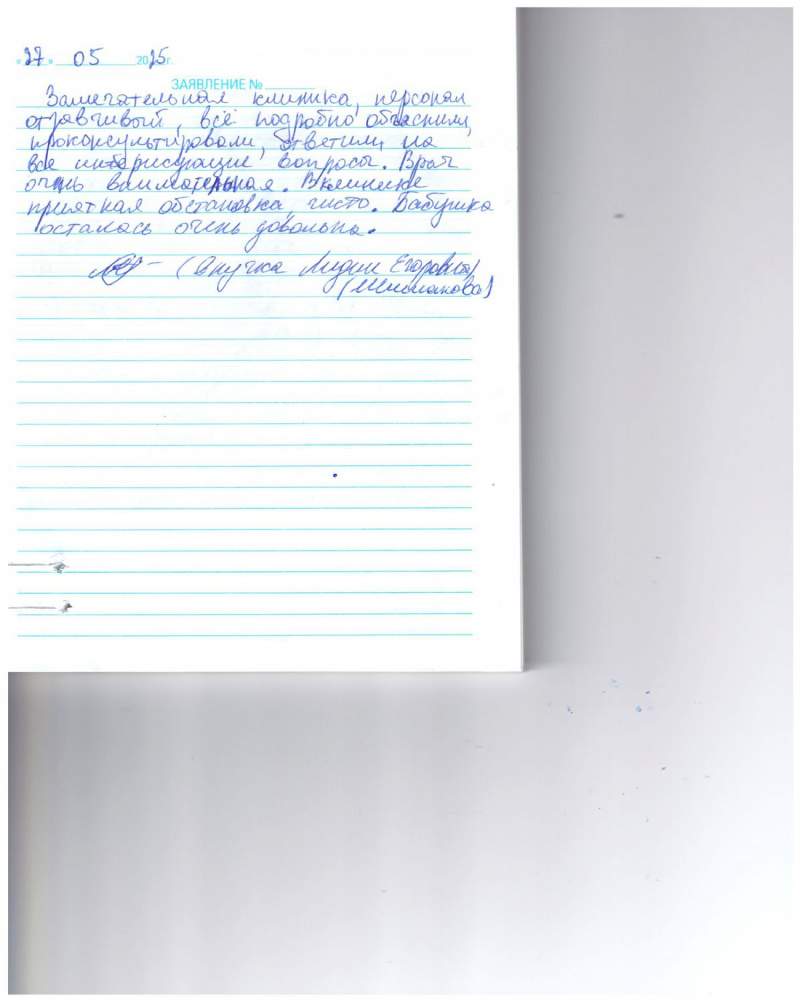 «27» 05 2025г.
ЗАЯВЛЕНИЕ №
Замечательная клиника, персонал
отзавчивый, всё подробно объяснили,
проконсультировали, ответили на
все интерисующие вопросы. Врач
очень внимательная. В клинике
приятная обстановка, чисто. Бабушка
осталась очень довольна.
(Внучка Лидии Егоровны)